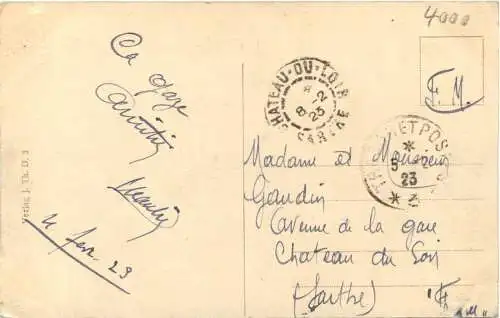 4000
F. M.
CHATEAU-DU-LOIR
8-2
23
SARTHE
POS
5
23
3
Ca gaze
Amitiés
4 fev. 23
Verlag J. Th. D. 3
Madame et Monsieur
Gaudin
Avenue de la gare
Chateau du Loir
(Sarthe)